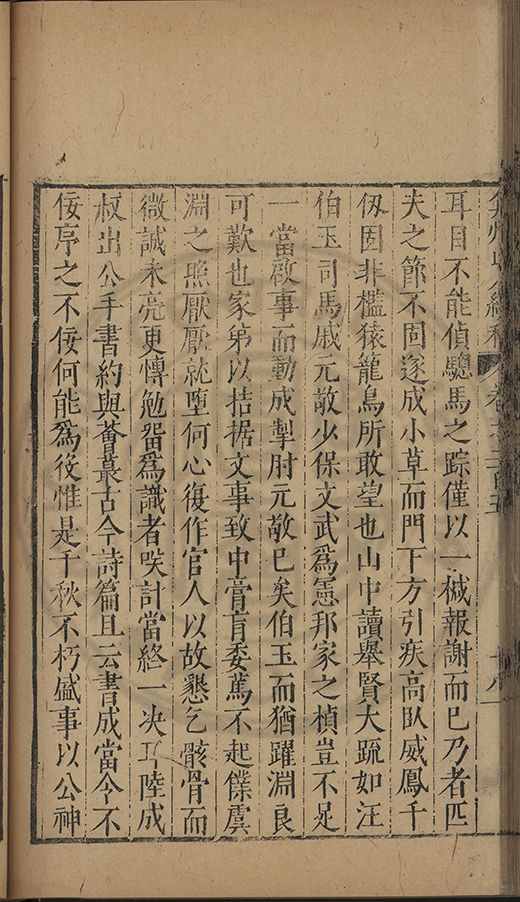 耳目不能偵驄馬之踪僅以一械報謝而已乃者匹
夫之節不固遂成小草而門下方引疾高臥威鳳千
仭固非檻猿籠鳥所敢望也山中讀舉賢大疏如汪
伯玉司馬戚元敬少保文武爲憲邦家之楨豈不足
一當啟事而動成掣肘元敬已矣伯玉而猶躍淵良
可歎也家弟以拮据文事致中膏肓委篤不起饞虞
淵之照厭厭就墮何心復作官人以故懇乞骸骨而
微誠未亮更慱勉畱爲識者咲計當終一决耳陸成
叔出公手書約與蒼蕞古今詩篇且云書成當令不
佞序之不佞何能爲役惟是千秋不朽盛事以公神